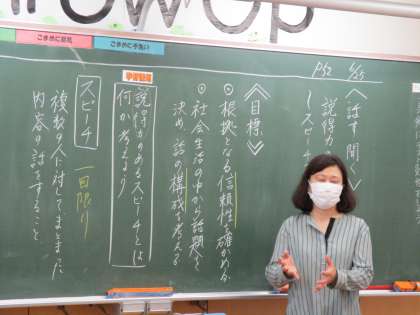 Grow Up
こまめに換気
こまめに手洗い
6/25
P52
〈話す・聞く〉
説得力の
スピーチ
≪目標≫
◎根拠となる信頼性を確かめる
◎社会生活の中から話題を
決め、話の構成を考える
学習課題
説得力のあるスピーチとは
何か考えよう
スピーチ 一回限り
複数の人に対してまとまった
内容の話をすること